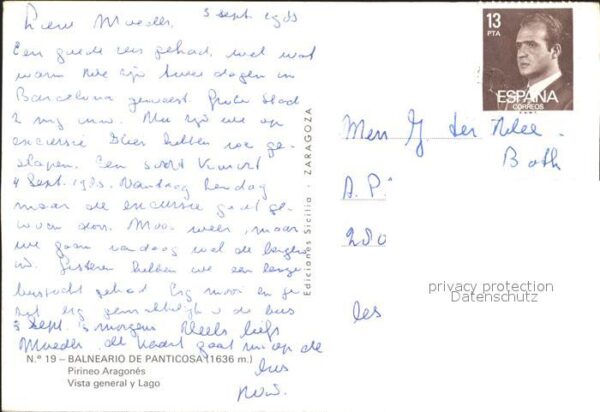 5 sept 1983
Lieve Moeder,
Een goede reis gehad, wel wat
warm. We zijn twee dagen in
Barcelona geweest. Grote stad
2 mlj inw. Nu zijn we op
excursie. Hier hebben we ge-
slapen. Een soort
4 Sept. 1983. Vandaag Zondag
maar de excursie gaat ge-
woon door. Mooi weer, maar
we gaan vandaag wel de bergen
in. Gisteren hebben we een lange
bustocht gehad. Erg mooi en je
zit erg gemakkelijk in de bus
5 sept. 's morgens
Moeder, de kaart gaat nu op de
bus
N.º 19 – BALNEARIO DE PANTICOSA (1636 m.)
Pirineo Aragonés
Vista general y Lago
Ediciones Sicilia · ZARAGOZA
13
PTA
ESPAÑA
CORREOS
Mevr G. ter
Both
A.P.
280
les
privacy protection
Datenschutz